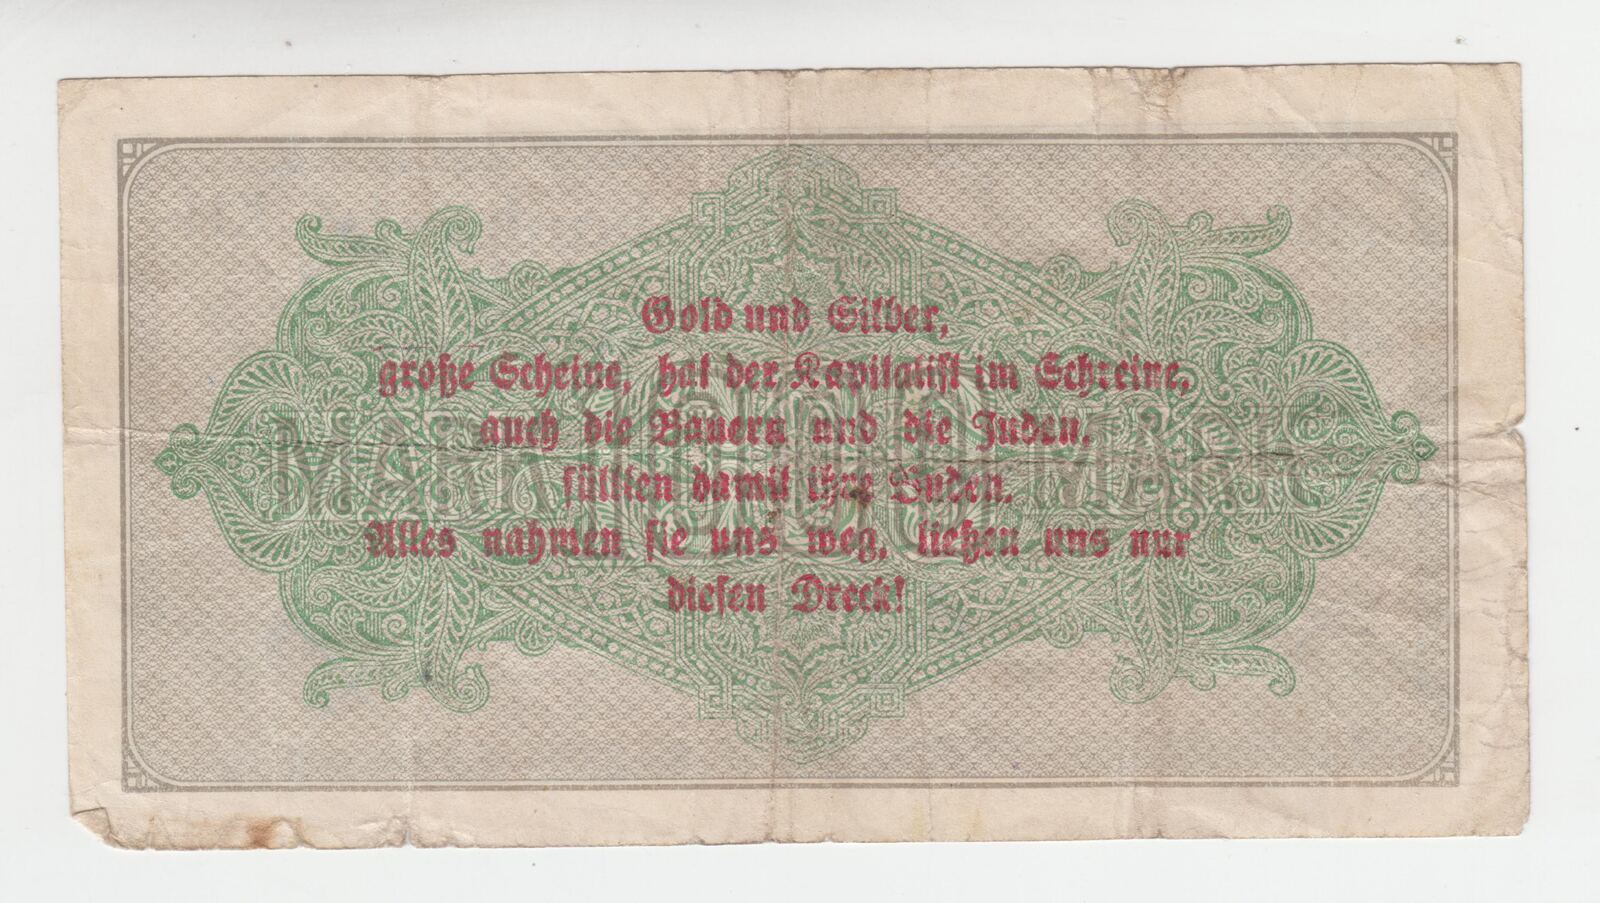 Gold und Silber,
große Scheine, hat der Kapitalist im Schreine,
auch die Bauern und die Juden,
füllten damit ihre Buden.
Alles nahmen sie uns weg, ließen uns nur
diesen Dreck!
MARK 1000 MARK